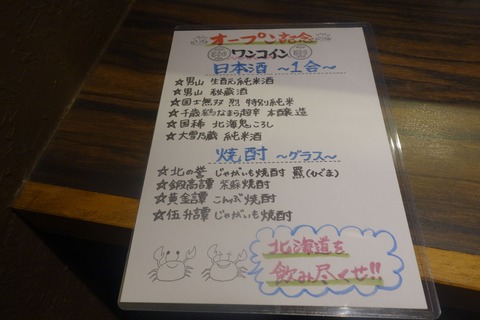 オープン記念
ワンコイン
日本酒 ~1合~
☆男山 生酛純米酒
☆男山 秘蔵酒
☆国士無双 烈 特別純米
☆千歳鶴 なまら超辛 本醸造
☆国稀 北海鬼ころし
☆大雪乃蔵 純米酒
焼酎 ~グラス~
☆北の誉 じゃがいも焼酎 羆(ひぐま)
☆鍛高譚 紫蘇焼酎
☆黄金譚 こんぶ焼酎
☆伍升譚 じゃがいも焼酎
北海道を
飲み尽くせ!!